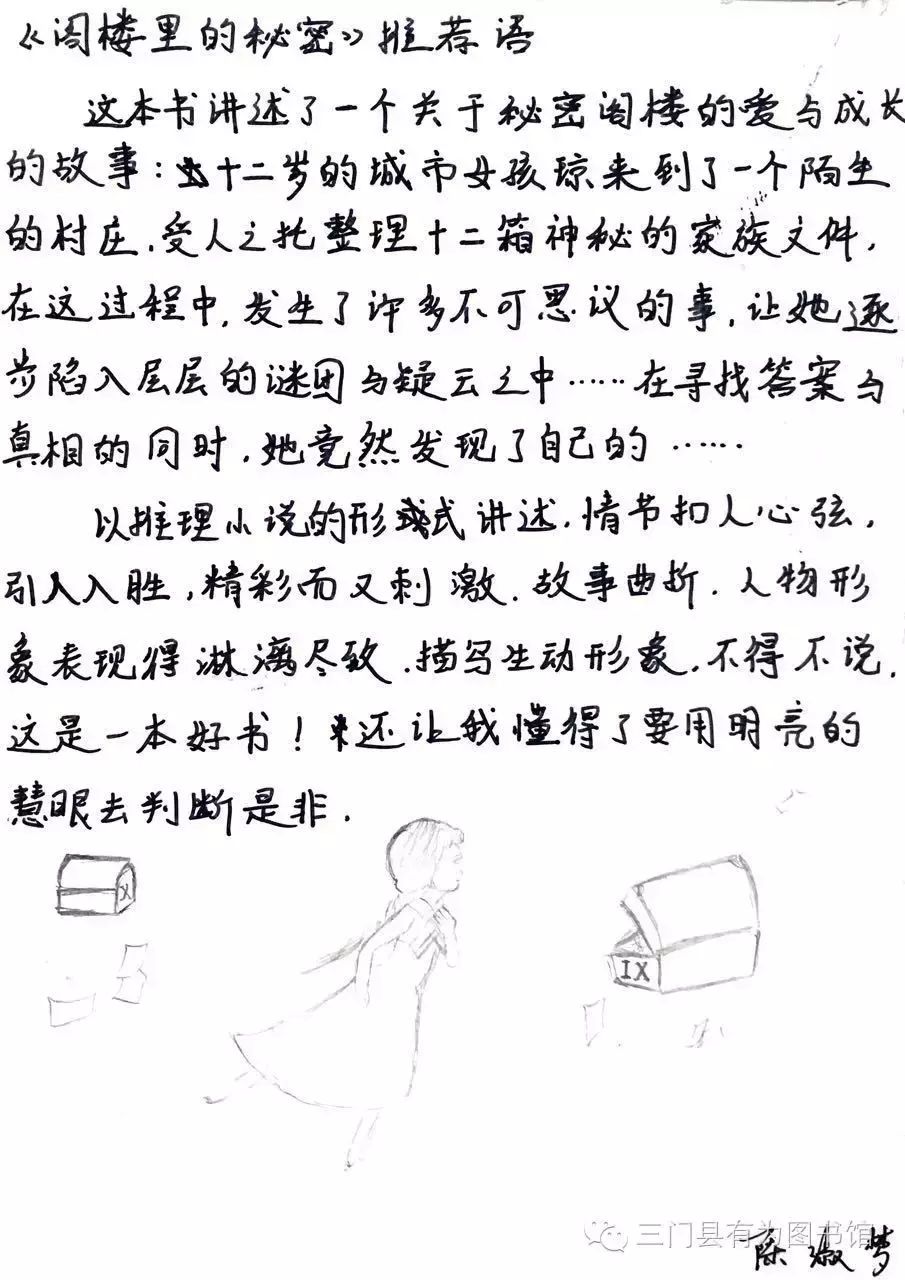 《阁楼里的秘密》推荐语
这本书讲述了一个关于秘密阁楼的爱与成长
的故事：十二岁的城市女孩琼来到了一个陌生
的村庄，受人之托整理十二箱神秘的家族文件，
在这过程中，发生了许多不可思议的事，让她逐
步陷入层层的谜团与疑云之中……在寻找答案与
真相的同时，她竟然发现了自己的……
以推理小说的形式讲述，情节扣人心弦，
引人入胜，精彩而又刺激．故事曲折．人物形
象表现得淋漓尽致．描写生动形象．不得不说，
这是一本好书！还让我懂得了要用明亮的
慧眼去判断是非．
X
IX
三门县有为图书馆
陈淑梦